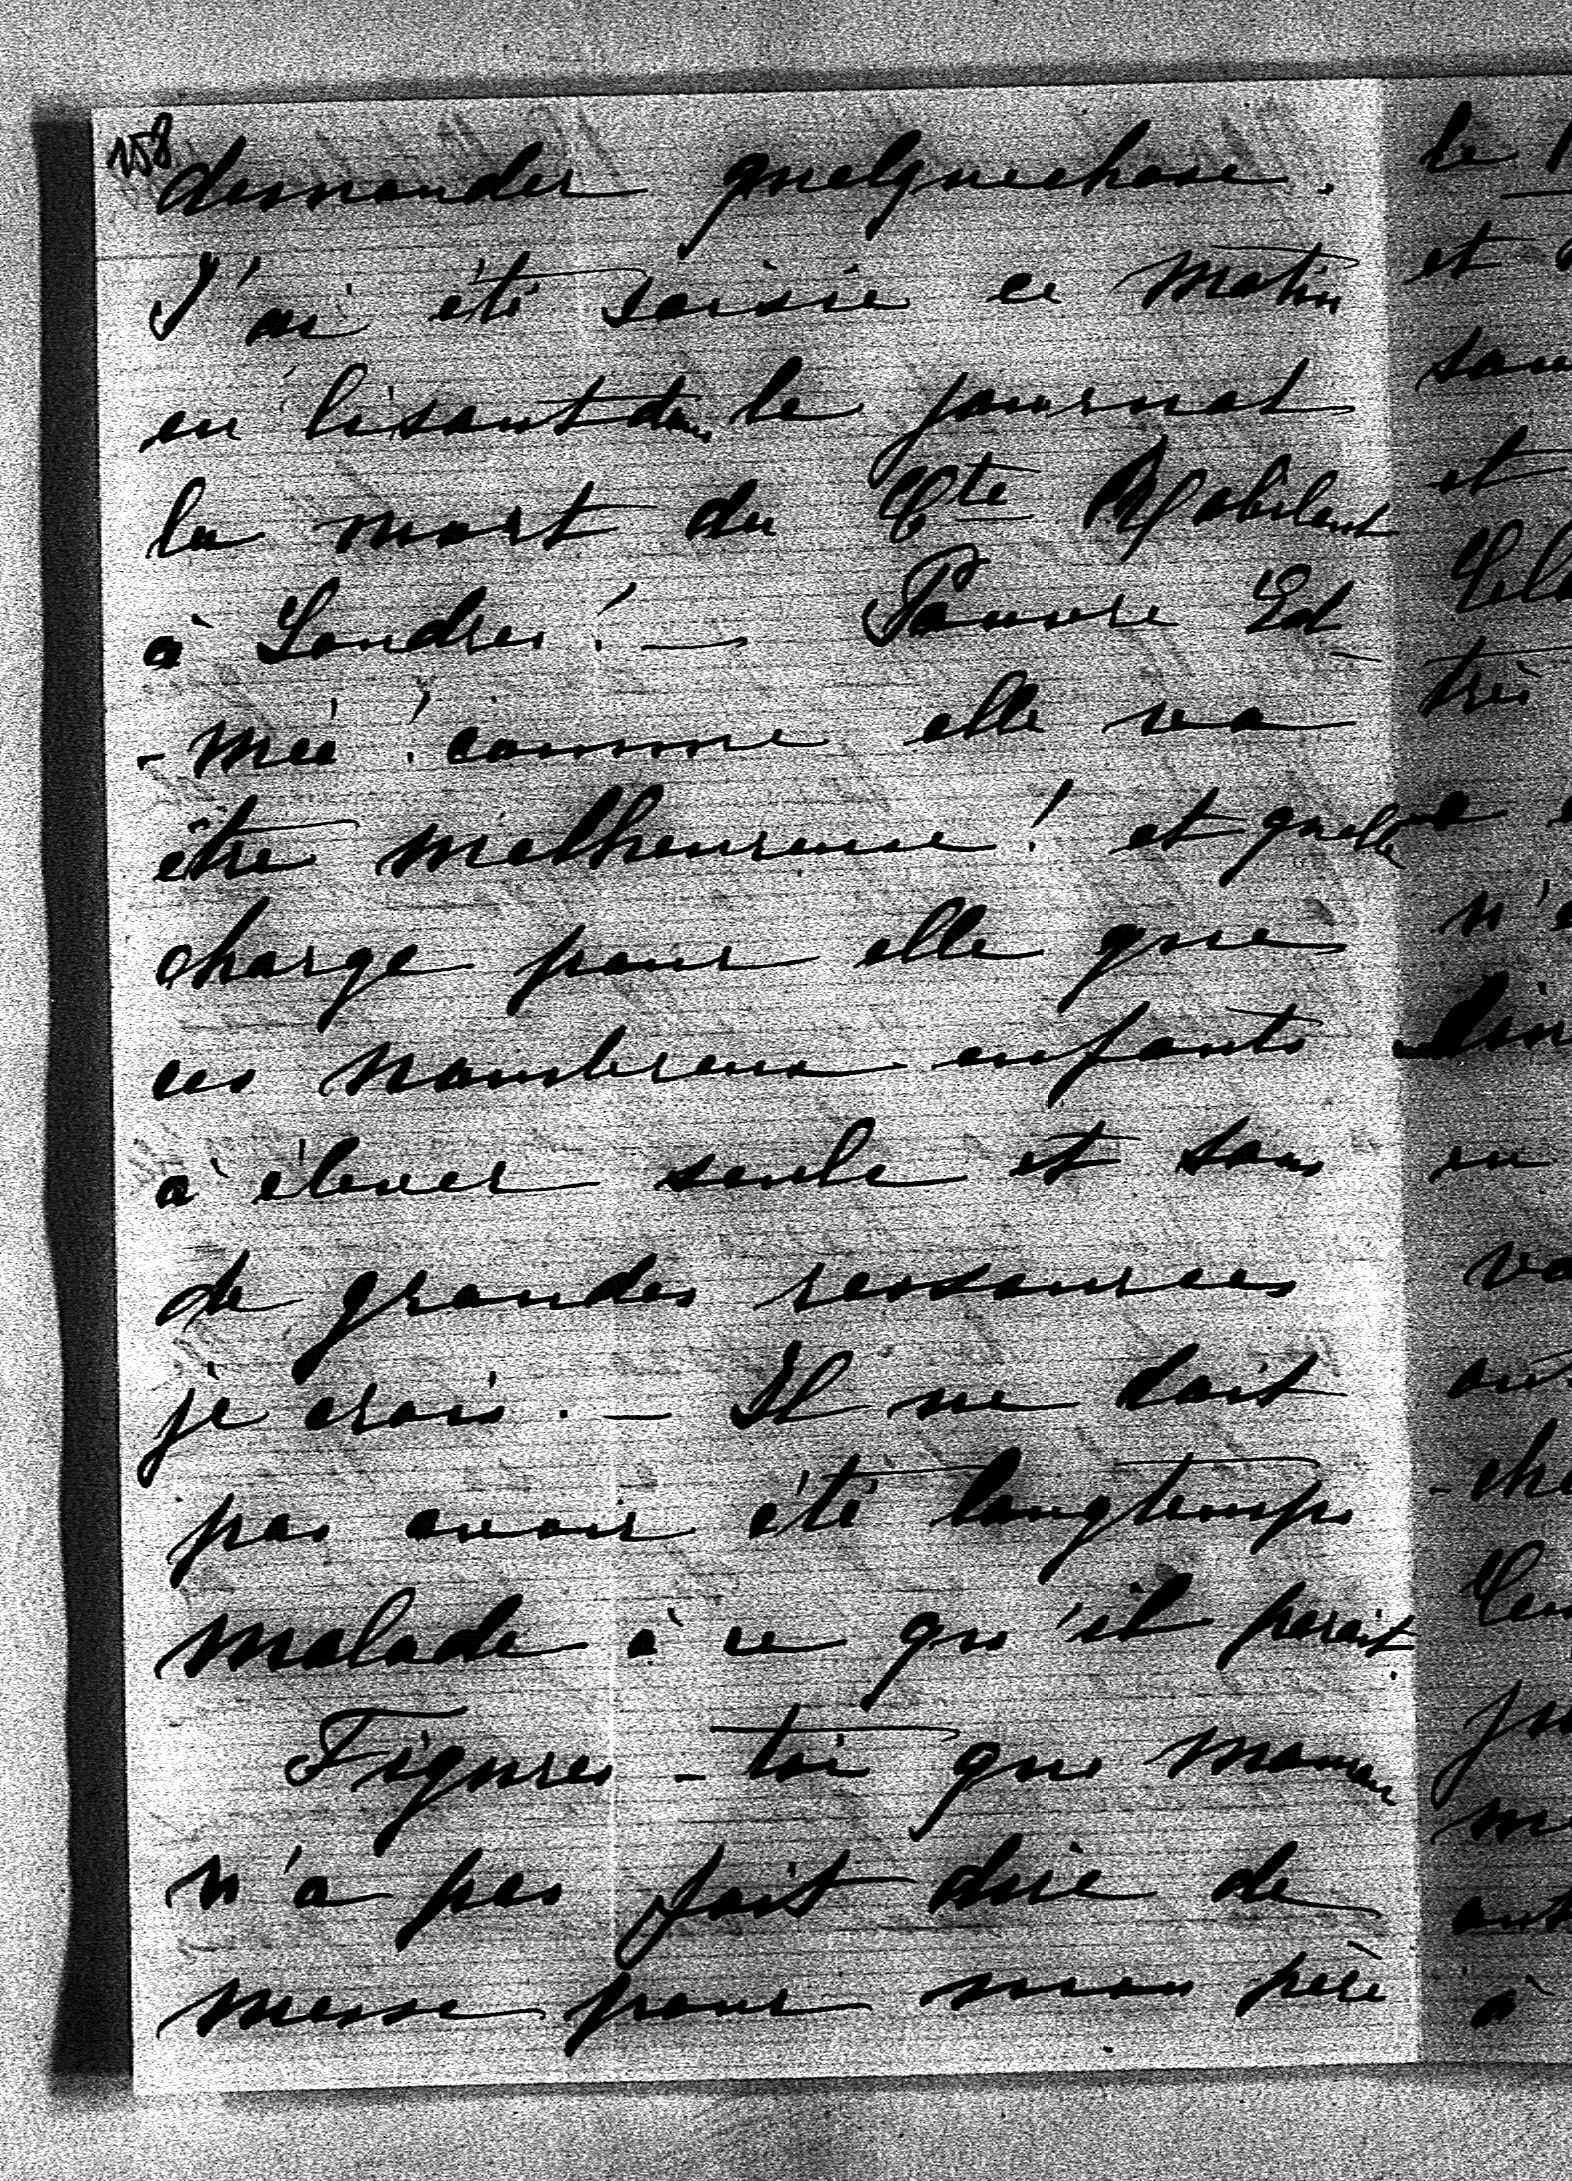 158
demander quelquechose.
J'ai été saisie ce matin
en lisant dans le journal
la mort du Cte Robilant
à Londres! — Pauvre Ed-
-mée! comme elle va
être malheureuse! et quelle
charge pour elle que
ces nombreux enfants
à élever seule et sans
de grandes ressources
je crois. — Il ne doit
pas avoir été longtemps
malade à ce qu'il parait.
Figures-toi que maman
n'a pas fait dire de
messe pour mon père
le
et
sans
et
très
n'e
ru
à